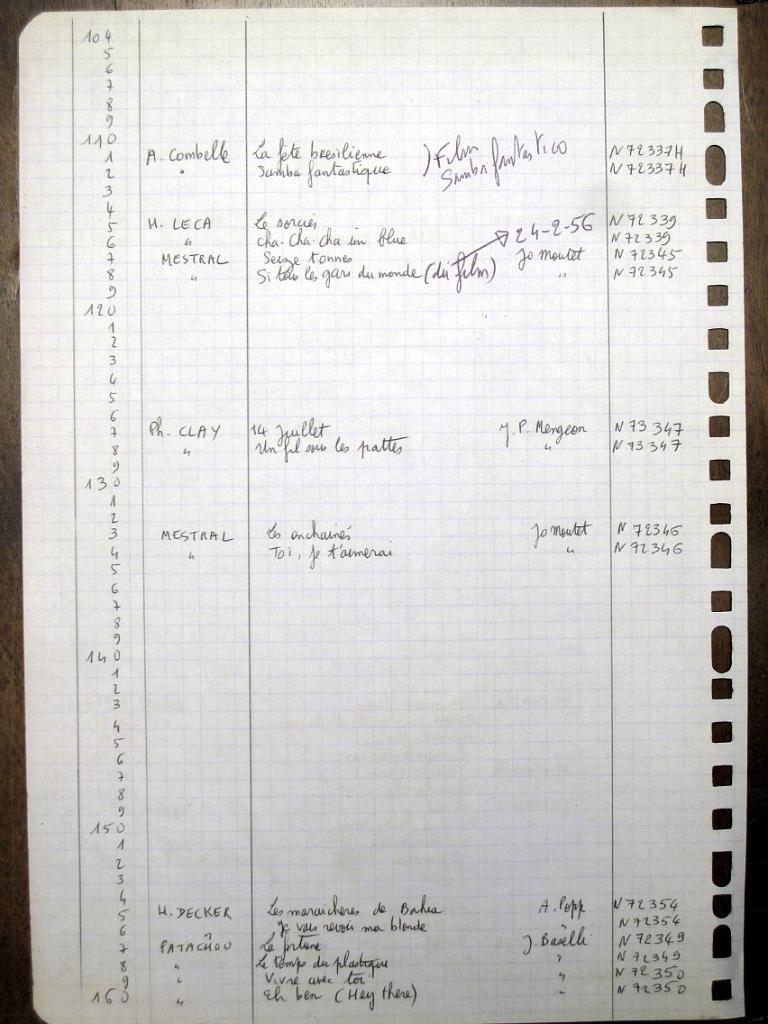 104
5
6
7
8
9
110
1 A. Combelle La fete bresilienne ) Film N 72337H
2 " Samba fantastique Sambri fantastico N 72337H
3
4
5 H. LECA Le sorcier 24-2-56 N 72339
6 " cha-cha-cha in blue N 72339
7 MESTRAL Seize tonnes Jo Moutet N 72345
8 " Si tous les gars du monde (du film) " N 72345
9
120
1
2
3
4
5
6
7 Ph. CLAY 14 Juillet J. P. Mengeon N 73347
8 " Un fil sous les pattes " N 73347
9
130
1
2
3 MESTRAL Les enchainés Jo Moutet N 72346
4 " Toi, je t'aimerai " N 72346
5
6
7
8
9
140
1
2
3
4
5
6
7
8
9
150
1
2
3
4
5 H. DECKER Les maraicheres de Bahia A. Popp N 72354
6 " Je vais revoir ma blonde " N 72354
7 PATACHOU La fortune J. Baselli N 72349
8 " Le temps du plastique " N 72349
9 " Vivre avec toi " N 72350
160 " Eh ben (Hey there) " N 72350